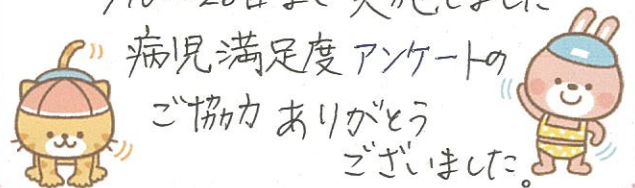 実施しました
病児満足度アンケートの
ご協力ありがとう
ございました。